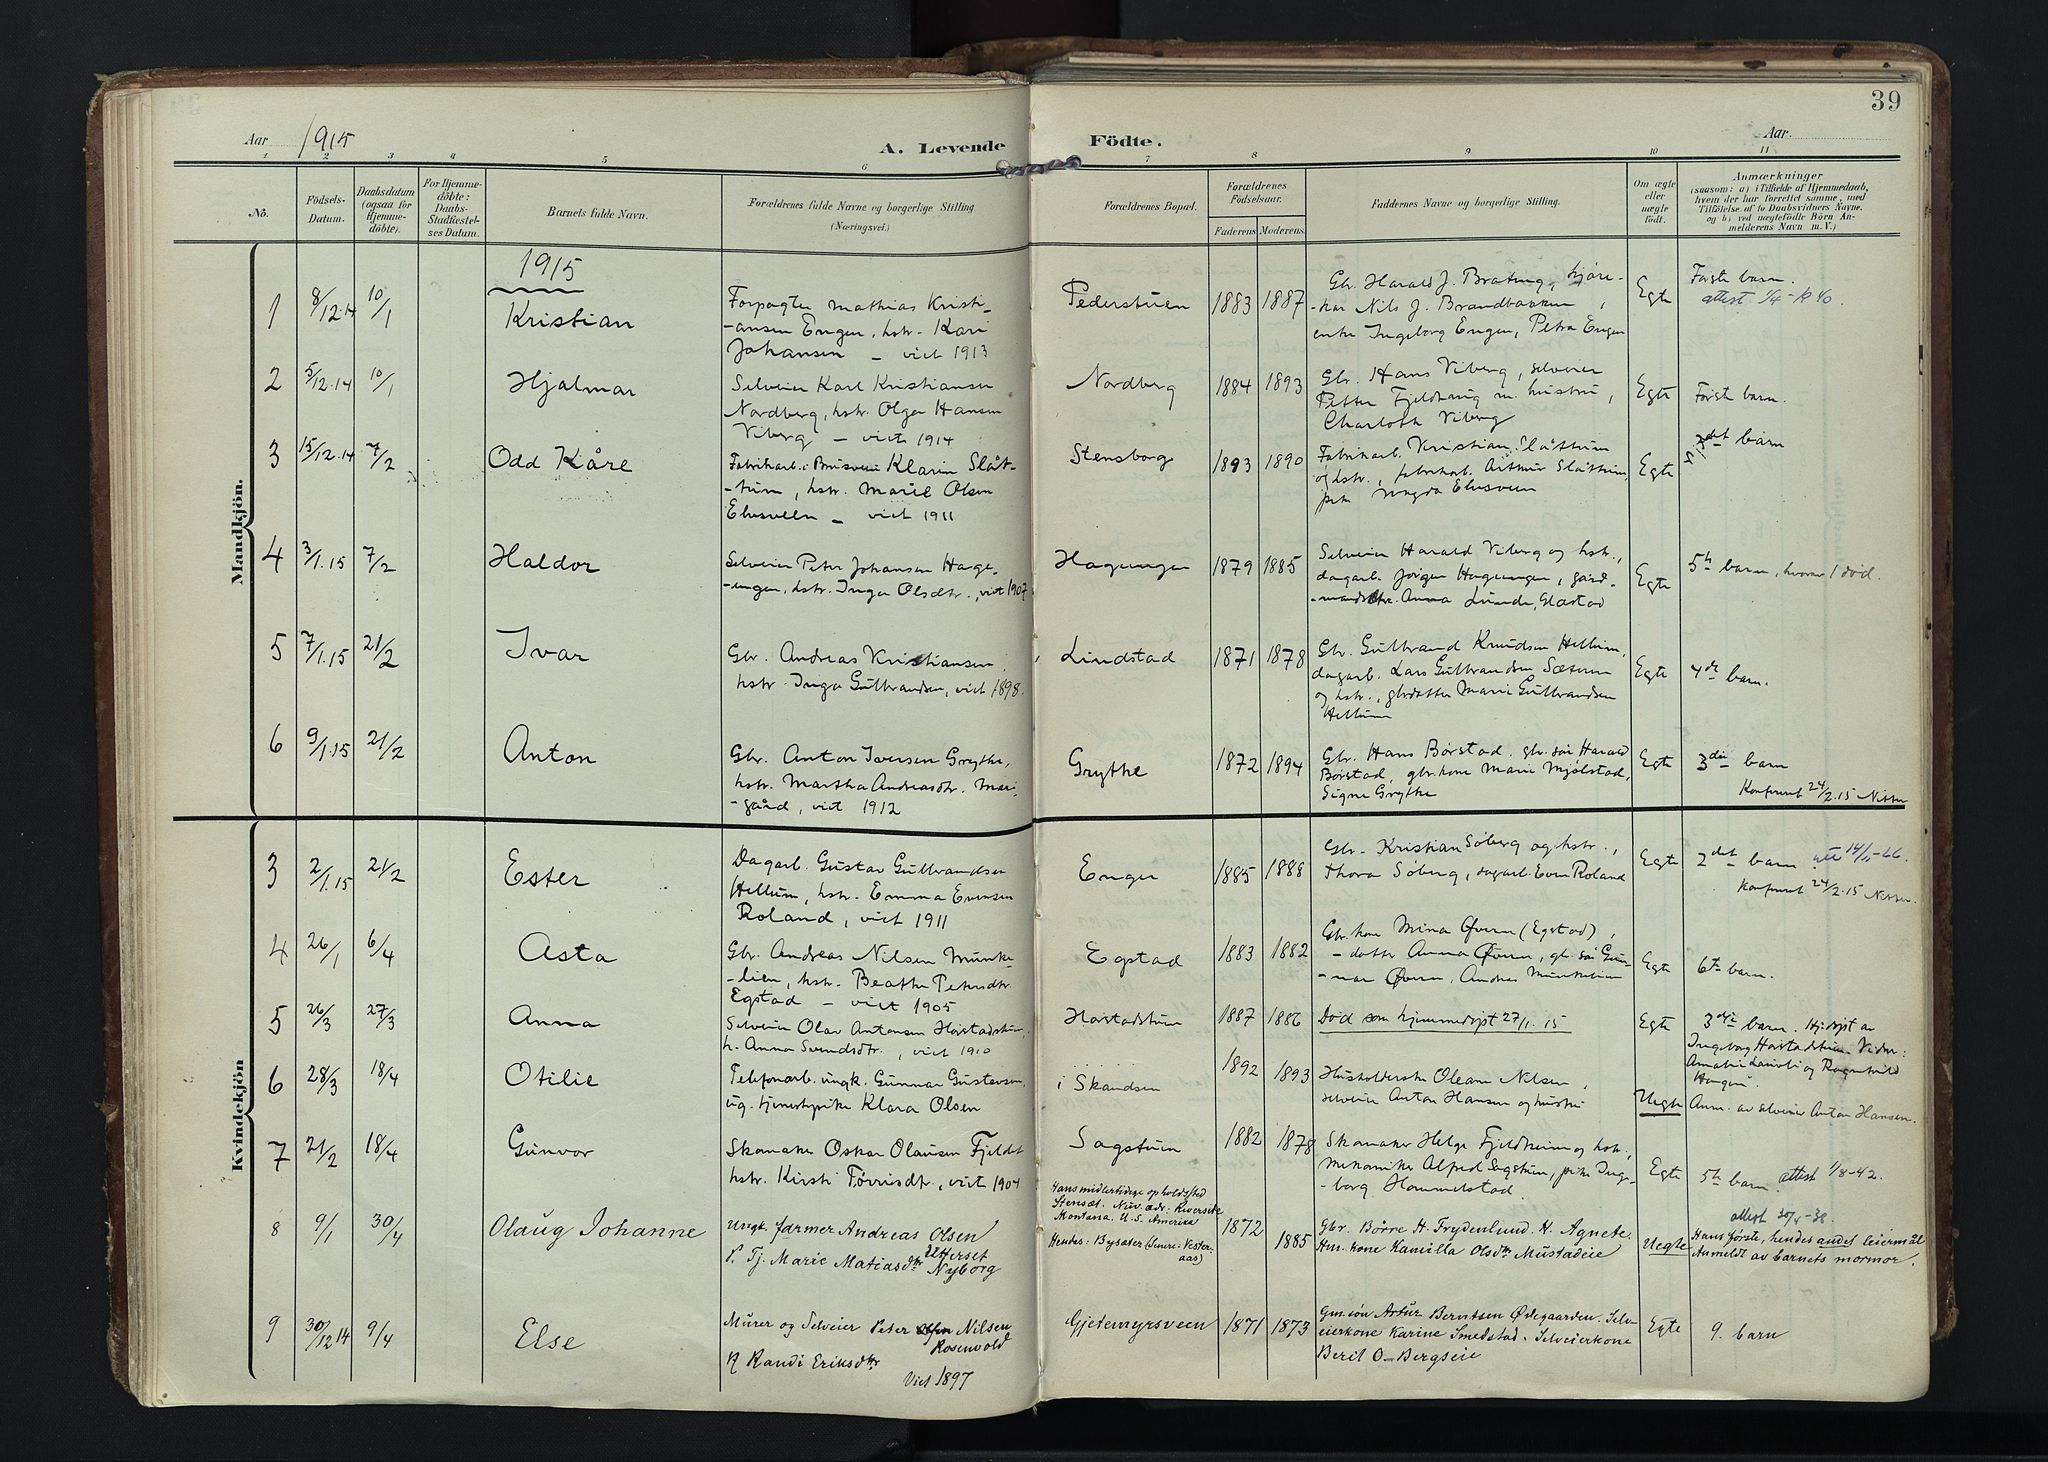 39
Aar 1915
A. Levende
Födte.
Aar.
1 2 3 4 5 6 7 8 9 10 11
No.
Födsels-Datum.
Daabsdatum (ogsaa for Hjemme-döbte).
For Hjemme-döbte: Daabs-Stadfæstel-ses Datum.
Barnets fulde Navn.
Forældrenes fulde Navne og borgerlige Stilling (Næringsvei.)
Forældrenes Bopæl.
Forældrenes Födselsaar.
Faderens Moderens
Faddernes Navne og borgerlige Stilling.
Om ægte eller uægte födt.
Anmærkninger
(saasom: a) i Tilfælde af Hjemmedaab,
hvem der har forrettet samme, med
Tilföielse af to Daabsvidners Navne.
og b) ved uægtefödte Börn An-
melderens Navn m. V.)
Mandkjön.
1915
1 8/12.14 10/1 Kristian
Forpagter Mathias Kristi-
-ansen Engen, hstr. Kari
Johansen – viet 1913
Pederstuen 1883 1887
Gbr. Harald J. Brateng, kjøre-
-kar Nils J. Brandbakken,
enke Ingeborg Engen, Petra Engen
Egte
Første barn.
attest 1/4-1940
2 5/12.14 10/1 Hjalmar
Selveier Karl Kristiansen
Nordberg, hstr. Olga Hansen
Viberg – viet 1914
Nordberg 1884 1893
Gbr. Hans Viberg, selveier
Petter Fjeldhaug m. hustru,
Charlotte Viberg
Egte
Første barn.
3 15/12.14 7/2 Odd Kåre
Fabrikarb. i Brusveen Klarin Slåt-
-tum, hstr. Marie Olsen
Elvesveen – viet 1911
Stensborg 1893 1890
Fabrikarb. Kristian Slåttum
og hstr., fabrikarb. Arthur Slåttum,
pike Magda Elvesveen
Egte
det barn
4 3/1.15 7/2 Haldor
Selveier Peter Johansen Hage-
-engen, hstr. Inga Olsdtr., viet 1907
Hageengen 1879 1885
Selveier Harald Viberg og hstr.,
dagarb. Jørgen Hageengen, gård-
-mandsdtr. Anna Lunde, Glæstad
Egte
5te barn, hvorav 1 død.
5 7/1.15 21/2 Ivar
Gbr. Andreas Kristiansen,
hstr. Inga Gulbrandsen, viet 1898.
Lindstad 1871 1878
Gbr. Gulbrand Knudsen Hellum,
dagarb. Lars Gulbrandsen Sæterem
og hstr., gbrdatter Marie Gulbrandsen
Hellum
Egte
4de barn.
6 9/1.15 21/2 Anton
Gbr. Anton Iversen Grythe,
hstr. Martha Andreasdtr. Mari-
-gård, viet 1912
Grythe 1872 1894
Gbr. Hans Børstad. gbr. søn Harald
Børstad, gbr.kone Marie Mjølstad,
Signe Grythe
Egte
3die barn
Konferert 24/2.15 Nissen
Kvindekjön
3 2/1.15 21/2 Ester
Dagarb. Gustav Gulbrandsen
Hellum, hstr. Emma Evensen
Roland, viet 1911
Enger 1885 1888
Gbr. Kristian Søberg og hstr.,
Thora Søberg, dagarb. Even Roland
Egte
2det barn att 14/11-66.
Konferert 24/2.15 Nissen.
4 26/1 6/4 Asta
Gbr. Andreas Nilsen Munke-
-lien, hstr. Beathe Petersdtr.
Egstad – viet 1905
Egstad 1883 1882
Gbr. kone Mina Øvern (Egstad),
- datter Anna Øvern, gb. søn Gun-
-nar Øvern, Andreas Munkelien
Egte
6te barn.
5 26/3 27/3 Anna
Selveier Olav Antonsen Horstadstuen,
h. Anna Svendsdtr., viet 1910
Horstadstuen 1887 1886
Død som hjemmedøpt 27/1.15
Egte
3die barn. Hjdøpt av
Ingeborg Horstadstuen Vidner:
Amalie Lauvli og Ragnhild
Haugen
6 28/3 18/4 Otilie
Telefonarb. ungk. Gunnar Gustavsen,
ug. tjenestepike Klara Olsen
i Skandsen 1892 1893
Husholderske Oleane Nilsen,
selveier Anton Hansen og hustru
Uegte
Anm. av selveier Anton Hansen.
7 21/2 18/4 Gunvor
Skomaker Oskar Olausen Fjeldet
hstr. Kirsti Tørrisdtr., viet 1904
Sagstuen 1882 1878
Skomaker Helge Fjeldheim og hstr.,
Mekaniker Alfred Sagstuen, pike Inge-
-borg Hommelstad.
Egte
5te barn attest 1/8-42.
8 9/1 30/4 Olaug Johanne
Ungk. farmer Andreas Olsen Utterset
P. Tj. Marie Matiasdtr Nyborg
Hans midlertidige opholdsted
Stensæt. Nuv. adr: Riverside
Montana. U.S. Amerika
Hendes: Bysæter (Senere: Vester-
aas)
1872 1885
Gbr. Børre H. Frydenlund. H. Agnete.
Hm. kone Kamilla Olsdtr Mustadeie
Uegte
attest 30/5-38.
Hans første, hendes andet leiermål
Anmeldt av barnets mormor.
9 30/12 14 9/4 Else
Murer og Selveier Peter Nilsen
Rosenvold
H Randi Eriksdtr
Viet 1897
Gjetemyrsveen 1871 1873
Gmsøn Artur Berntsen Ødegaarden. Selv-
eierkone Karine Smedstad. Selveierkone
Berit O. Bergseie
Egte
9. barn